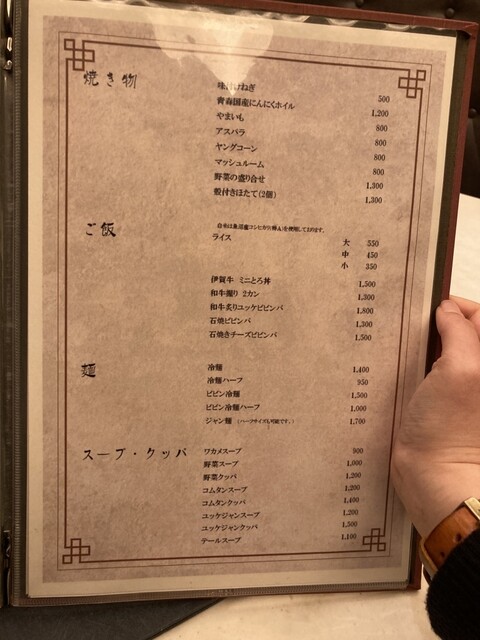 焼き物
味付けねぎ 500
青森国産にんにくホイル 1,200
やまいも 800
アスパラ 800
ヤングコーン 800
マッシュルーム 800
野菜の盛り合せ 1,300
殻付きほたて(2個) 1,300
ご飯
白米は魚沼産コシヒカリ(特A)を使用しております。
ライス 大 550
中 450
小 350
伊賀牛 ミニとろ丼 1,500
和牛握り 2カン 1,300
和牛炙りユッケビビンバ 1,800
石焼ビビンバ 1,300
石焼きチーズビビンバ 1,500
麺
冷麺 1,400
冷麺ハーフ 950
ビビン冷麺 1,500
ビビン冷麺ハーフ 1,000
ジャン麺 (ハーフサイズも可能です。) 1,700
スープ・クッパ
ワカメスープ 900
野菜スープ 1,000
野菜クッパ 1,200
コムタンスープ 1,200
コムタンクッパ 1,400
ユッケジャンスープ 1,200
ユッケジャンクッパ 1,300
テールスープ 1,100